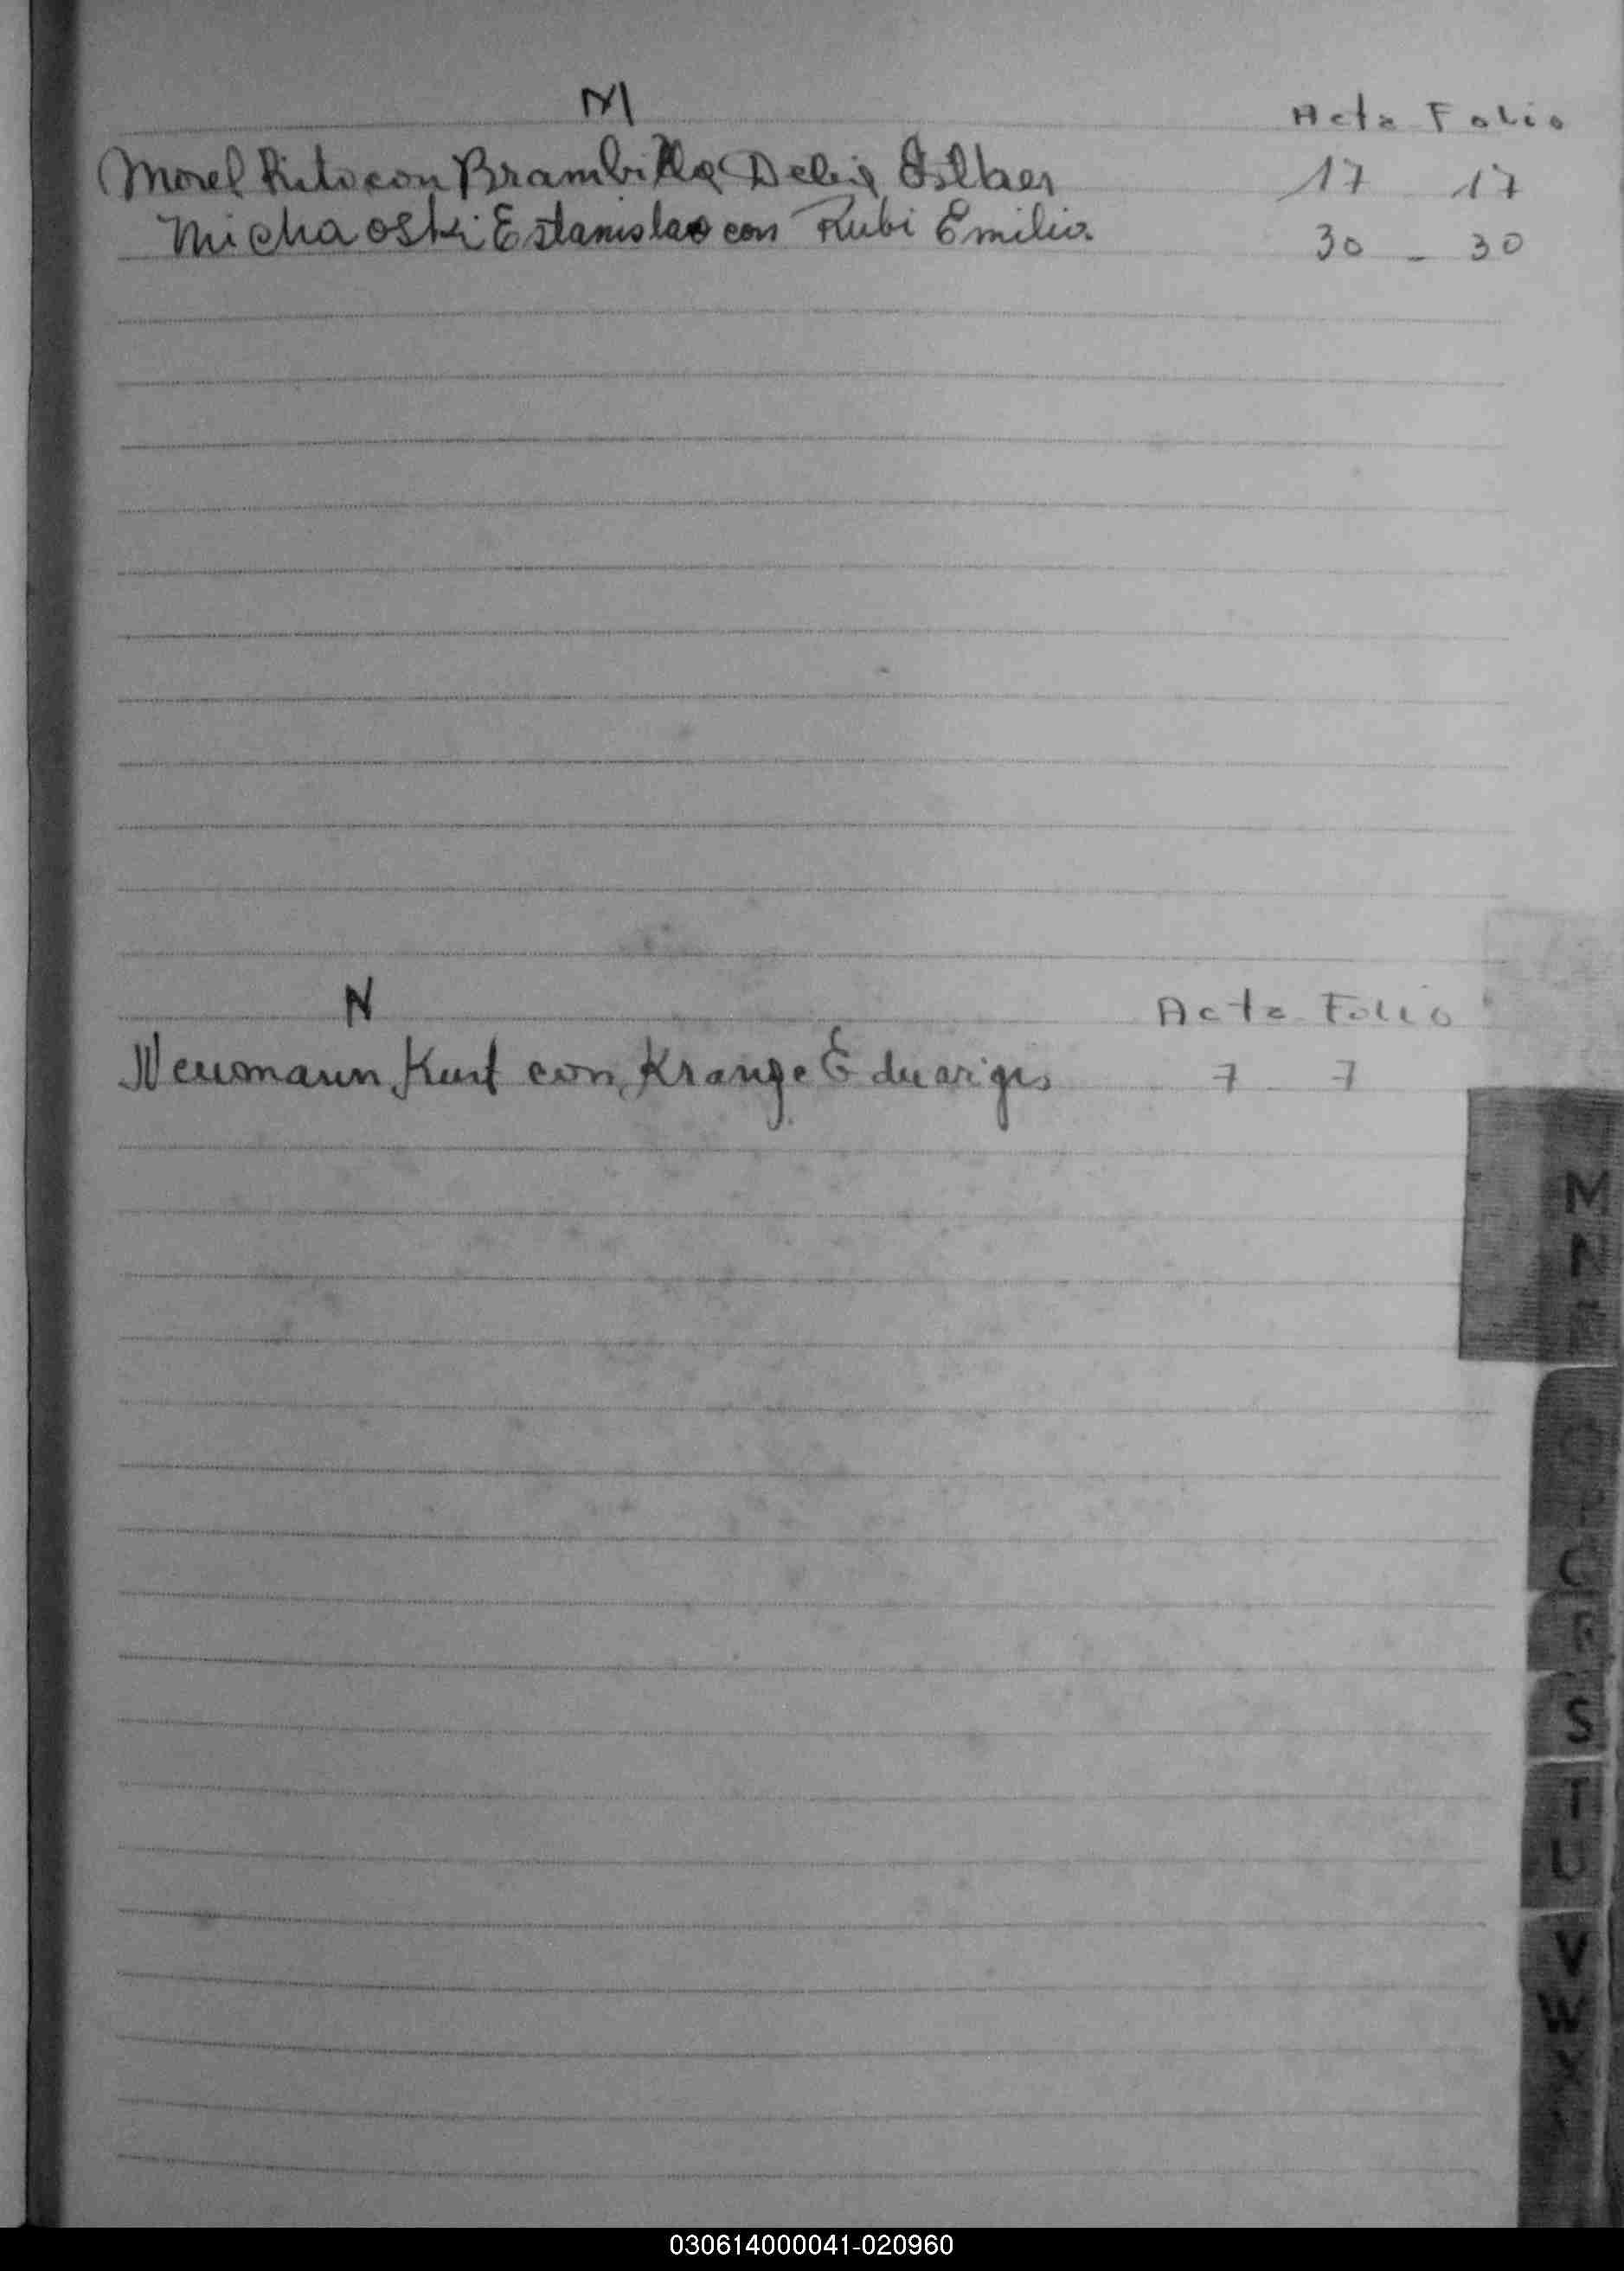 M
Acta Folio
Morel Rito con Brambilla Delia Esther 17 17
Michaoski Estanislao con Rubi Emilia 30 - 30
N
Acta Folio
Neumann Kurt con Krange Eduvigis 7 - 7
M
N
S
T
U
V
W
X
030614000041-020960